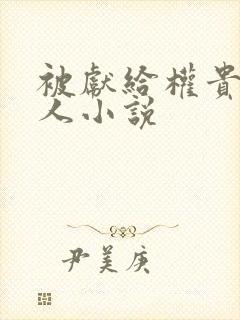 被獻給權貴
人小說
尹美庚